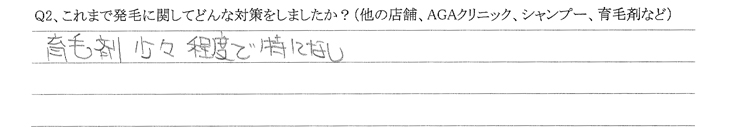 Q2、これまで発毛に関してどんな対策をしましたか？(他の店舗、AGAクリニック、シャンプー、育毛剤など)
育毛剤 少々 程度で特になし